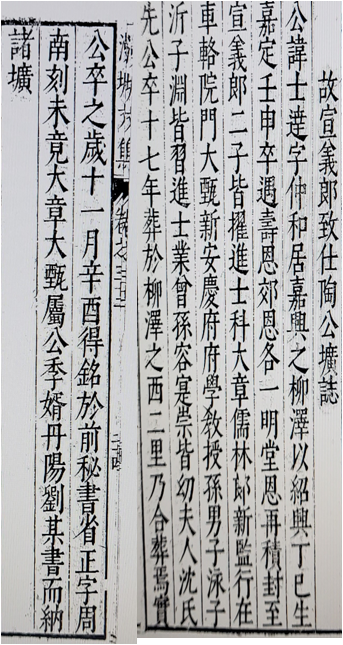 故宣義郎致仕陶公壙誌
公諱士達字仲和居嘉興之柳澤以紹興丁巳生
嘉定壬申卒遇壽恩郊恩各一明堂恩再積封至
宣義郎二子皆擢進士科大章儒林郎新監行在
車輅院門大甄新安慶府府學敎授孫男子泳子
沂子淵皆習進士業曾孫容寔崇皆幼夫人沈氏
先公卒十七年葬於柳澤之西二里乃合葬焉實
公卒之歲十一月辛酉得銘於前秘書省正字周
南刻未竟大章大甄屬公季婿丹陽劉某書而納
諸壙